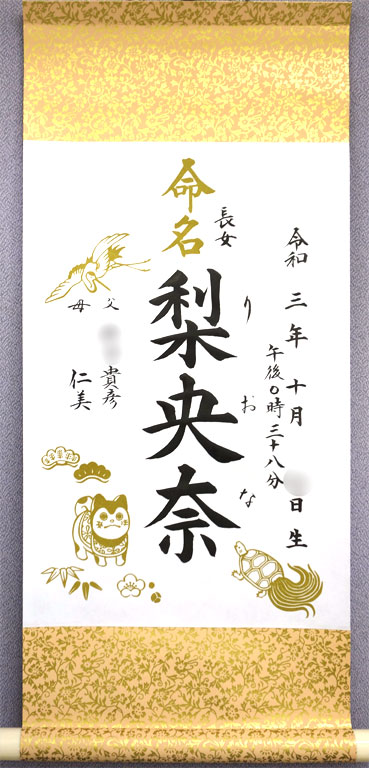 令和三年十月
日生
午後0時三十八分
命名
長女
梨央奈
りおな
父
貴彦
母
仁美